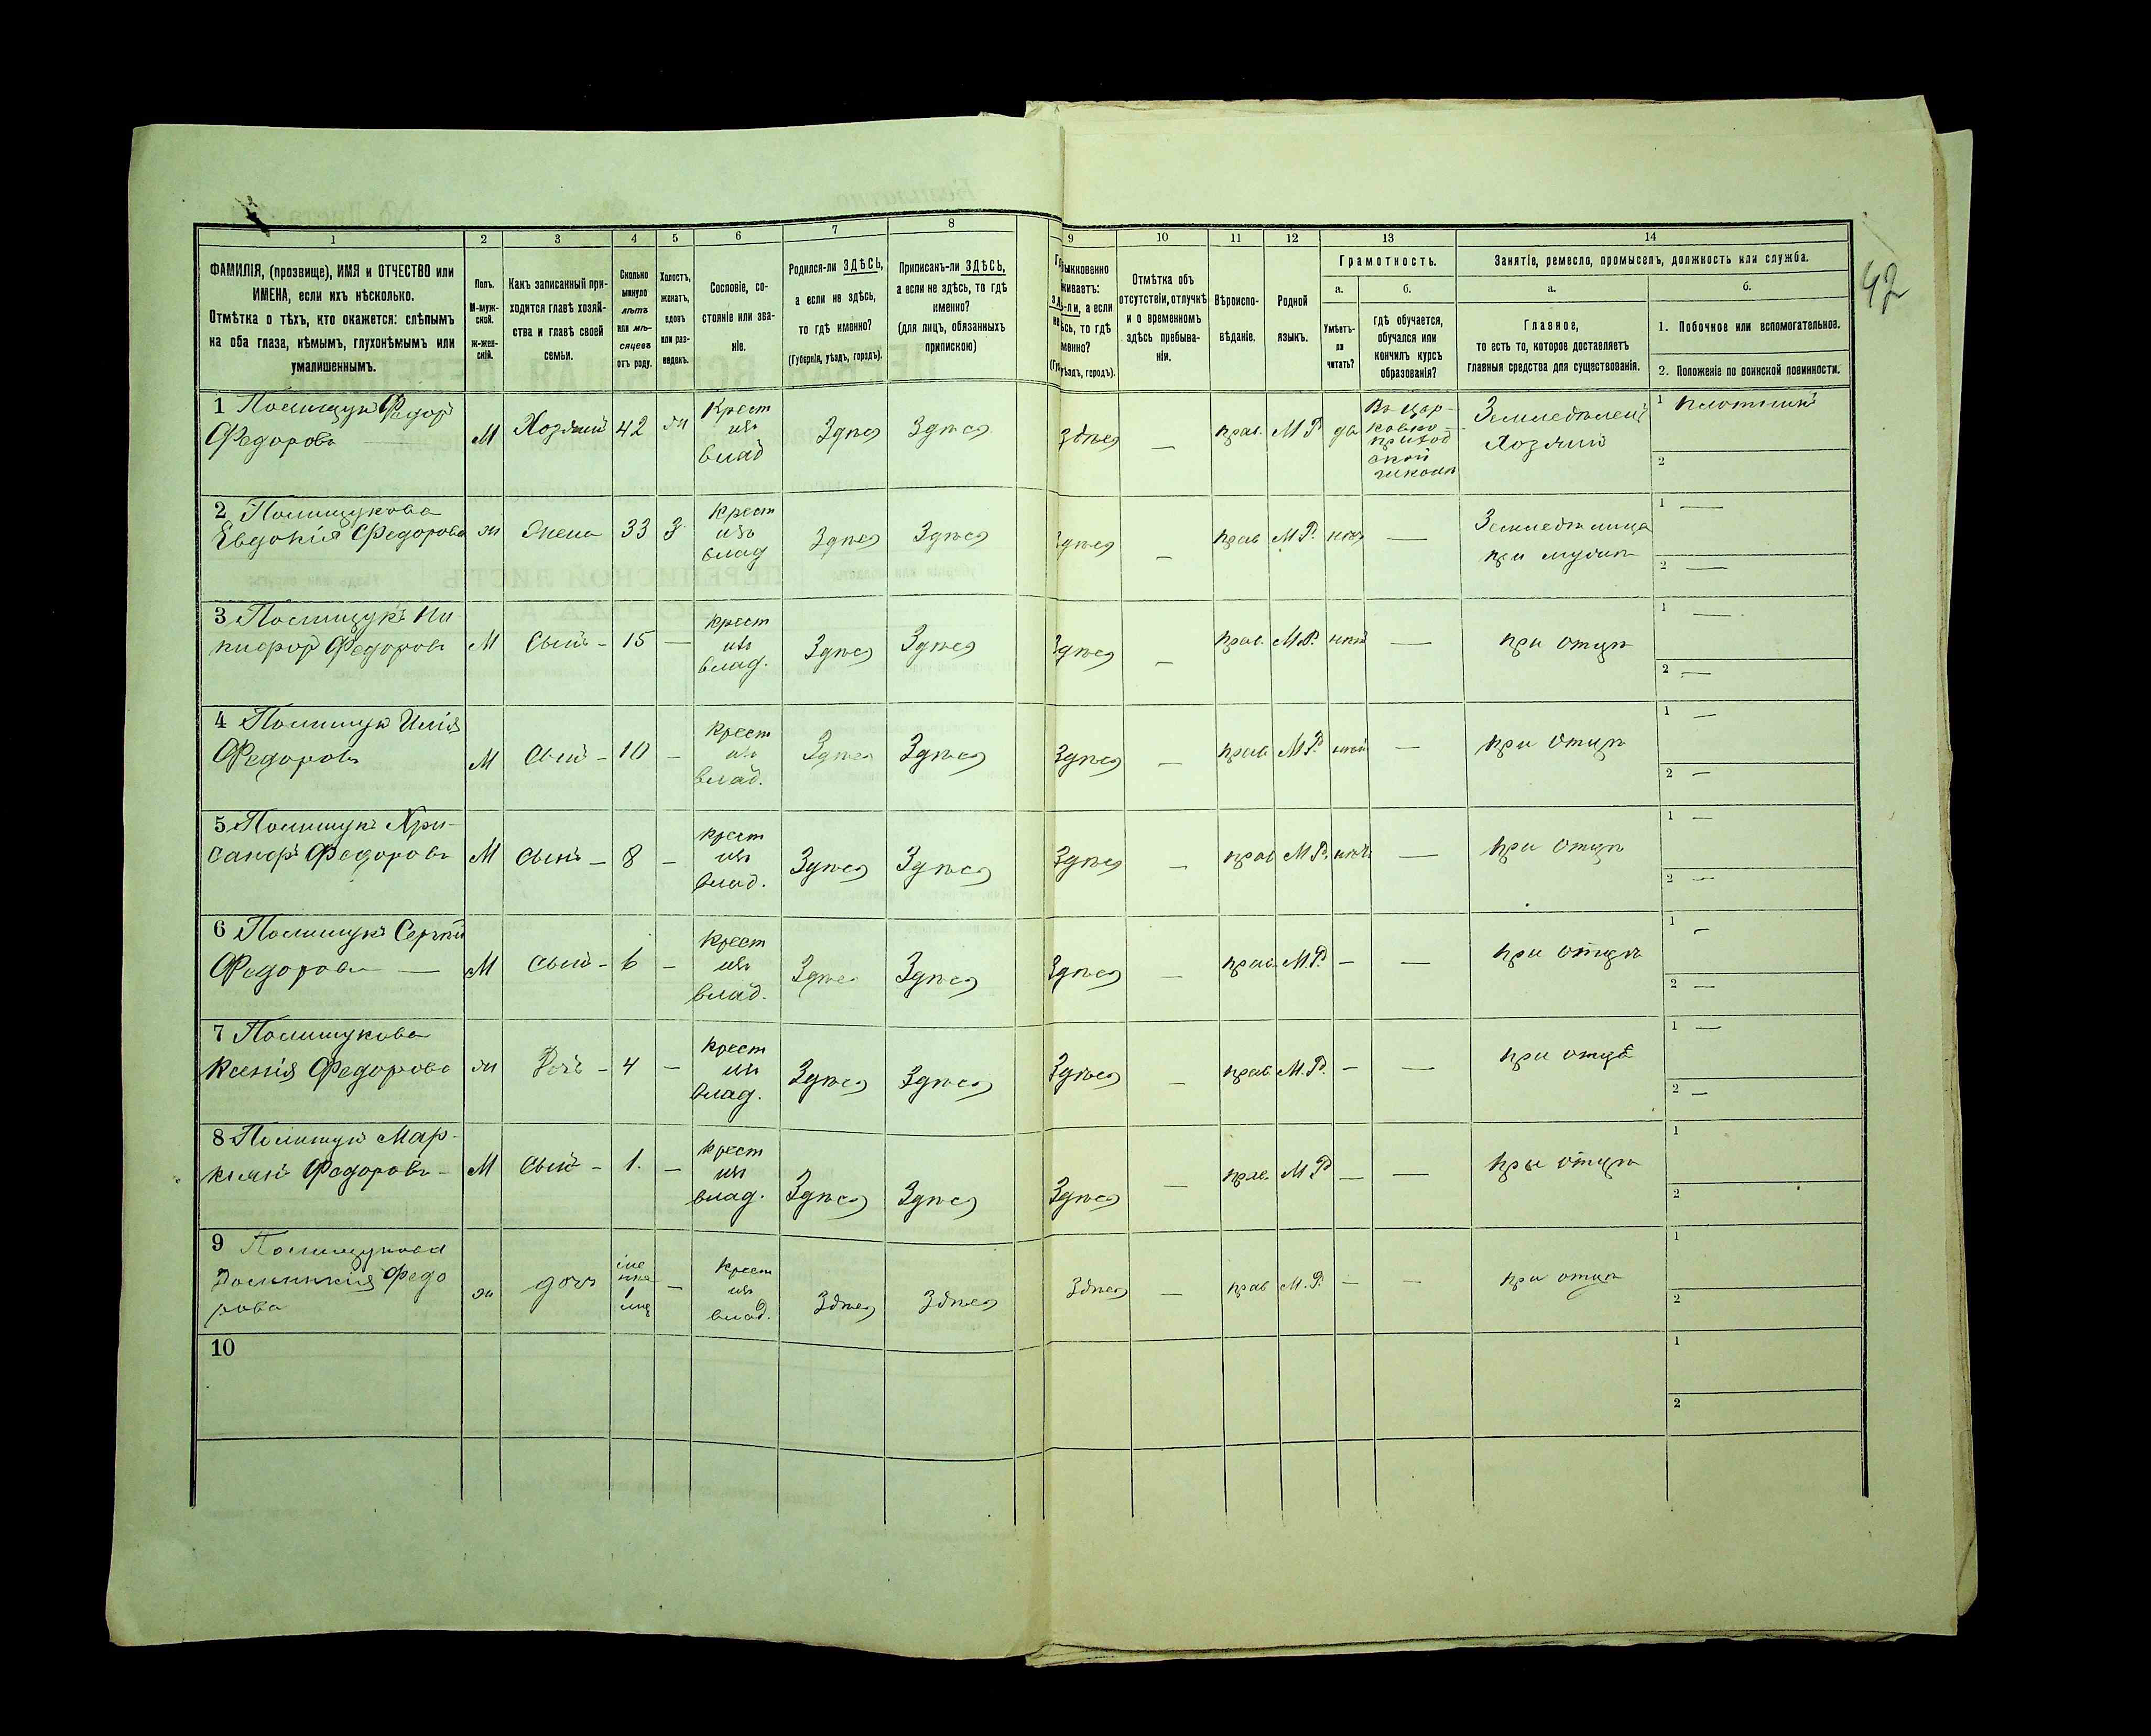 42
1 2 3 4 5 6 7 8 9 10 11 12 13 14
ФАМИЛІЯ, (прозвище), ИМЯ и ОТЧЕСТВО или
ИМЕНА, если ихъ нѣсколько.
Отмѣтка о тѣхъ, кто окажется: слѣпымъ
на оба глаза, нѣмымъ, глухонѣмымъ или
умалишеннымъ.
Полъ.
М-муж-
ской.
Ж-жен-
скій.
Какъ записанный при-
ходится главѣ хозяй-
ства и главѣ своей
семьи.
Сколько
минуло
лѣтъ
или мѣ-
сяцевъ
отъ роду.
Холостъ,
женатъ,
вдовъ
или раз-
веденъ.
Сословіе, со-
стояніе или зва-
ніе.
Родился-ли ЗДѢСЬ,
а если не здѣсь,
то гдѣ именно?
(Губернія, уѣздъ, городъ).
Приписанъ-ли ЗДѢСЬ,
а если не здѣсь, то гдѣ
именно?
(для лицъ, обязанныхъ
припискою)
быкновенно
живаетъ:
ли, а если
то гдѣ
менно?
уѣздъ, городъ).
Отмѣтка объ
отсутствіи, отлучкѣ
и о временномъ
здѣсь пребыва-
ніи.
Вѣроиспо-
вѣданіе.
Родной
языкъ.
Грамотность.
а.
Умѣетъ-
ли
читать?
б.
гдѣ обучается,
обучался или
кончилъ курсъ
образованія?
Занятіе, ремесло, промыселъ, должность или служба.
а.
Главное,
то есть то, которое доставляетъ
главныя средства для существованія.
б.
1. Побочное или вспомогательное.
2. Положеніе по воинской повинности.
1 Полищукъ Федоръ
Федоровъ — М Хозяинъ 42 ж Крест изъ влад Здѣсь Здѣсь Здѣсь — прав. М Р да Въ цер-
ковно-
приход
ской
школѣ
Земледѣлецъ
Хозяинъ
1 плотникъ
2
2 Полищукова
Евдокія Федорова ж Жена 33 З Крест изъ влад Здѣсь Здѣсь Здѣсь — прав М Р. нѣтъ —
Земледѣлица
при мужѣ
1 —
2 —
3 Полищукъ Ни
кифоръ Федоровъ М Сынъ - 15 — крест изъ влад. Здѣсь Здѣсь Здѣсь — прав. М.Р. нѣтъ — при отцѣ
1 —
2 —
4 Полищукъ Илія
Федоровъ М Сынъ - 10 - крест изъ влад. Здѣсь Здѣсь Здѣсь — прав М Р. нѣтъ — при отцѣ
1 —
2 —
5 Полищукъ Хри-
санфъ Федоровъ М Сынъ - 8 - крест изъ влад. Здѣсь Здѣсь Здѣсь — прав М Р. нѣтъ — при отцѣ
1 —
2 —
6 Полищукъ Сергѣй
Федоровъ — М Сынъ - 6 - крест изъ влад. Здѣсь Здѣсь Здѣсь — прав. М.Р. - — при отцѣ
1 —
2 —
7 Полищукова
Ксенія Федорова ж Дочь - 4 — крест изъ влад. Здѣсь Здѣсь Здѣсь — прав М.Р. - — при отцѣ
1 —
2 —
8 Полищукъ Мар-
кіянъ Федоровъ - М Сынъ - 1. — крест изъ влад. Здѣсь Здѣсь Здѣсь — прав. М Р — — при отцѣ
1
2
9 Полищукова
Домникія Федо
рова ж дочь 1 — Крест изъ влад. Здѣсь Здѣсь Здѣсь — прав М.Р. — - при отцѣ
1
2
10
1
2